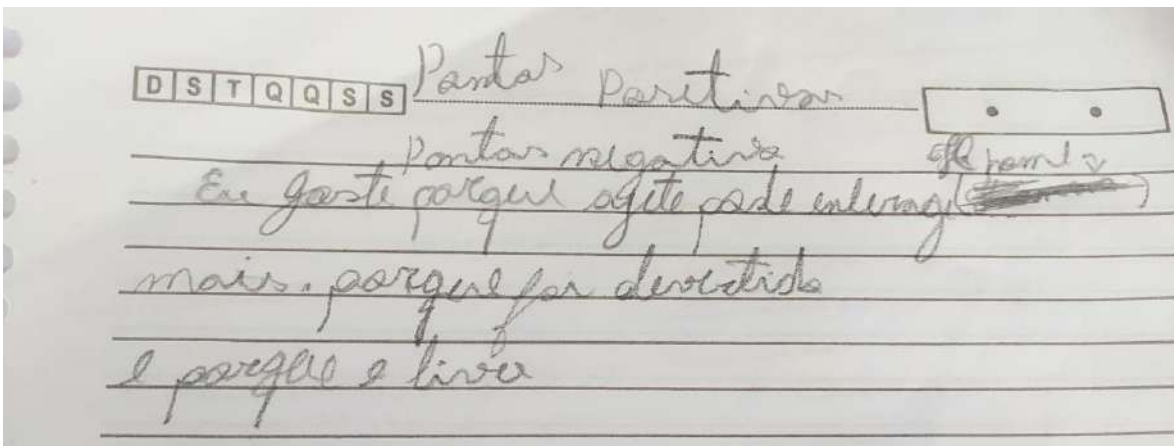 D S T Q Q S S Pontos Positivos
Pontos negativo
Eu goste porque agete pode enterragi
mais. porque foi devertido
e porque e livre